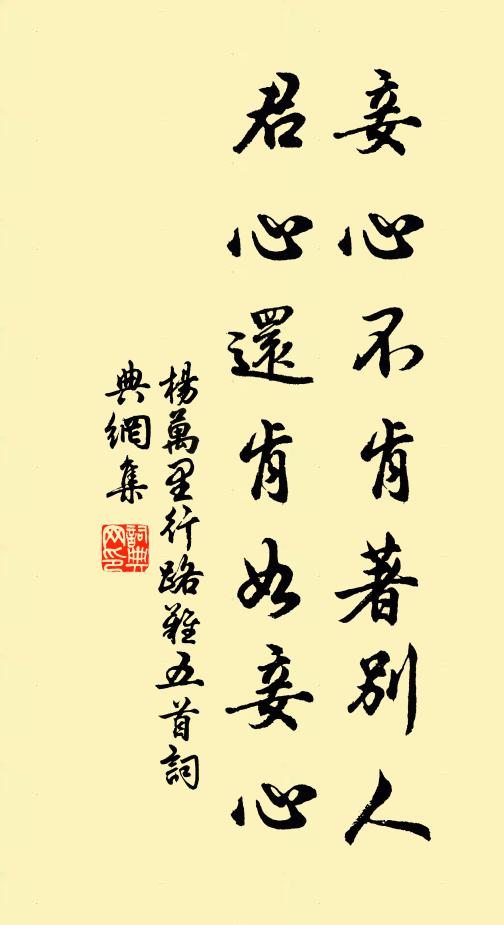 妾心不肯著別人
君心還肯如妾心
楊萬里行路難五首詞
典網集
詞典
网印